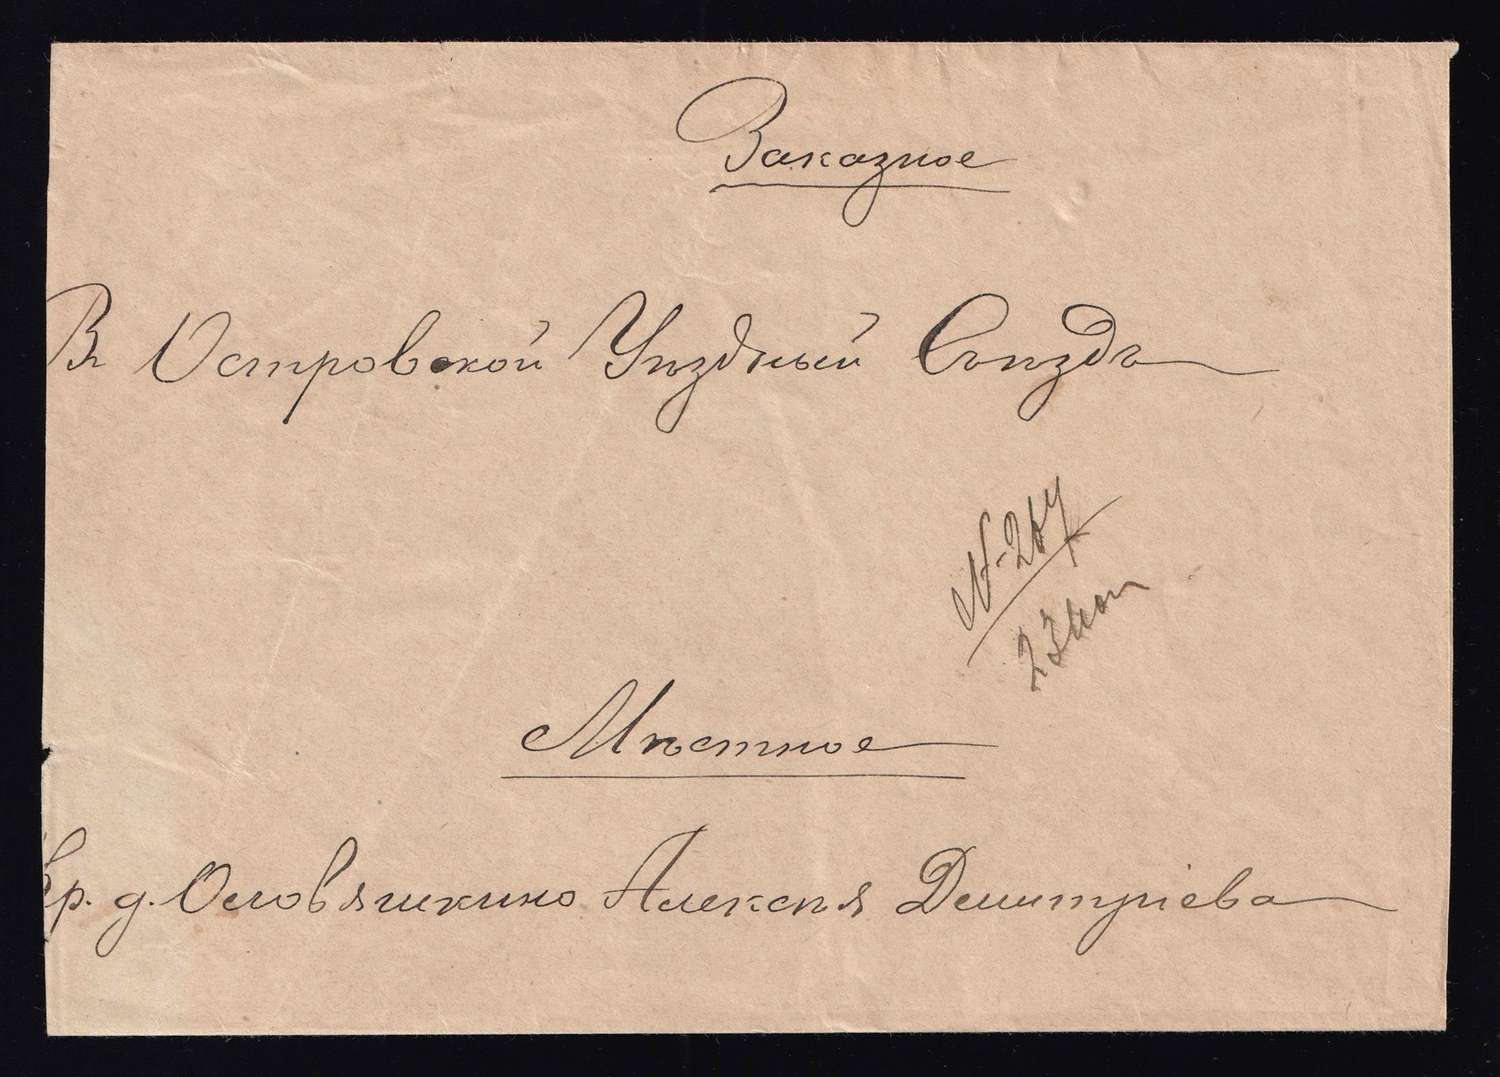 Заказное
Въ Островской Уѣздный Съѣздъ
№ 264
23 Іюн
Мѣстное
Кр. д. Оловяшкино Алексѣя Дмитріева